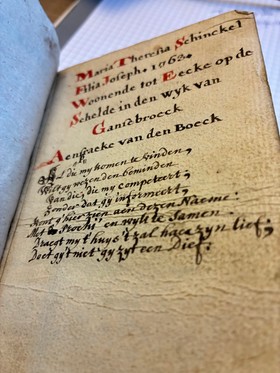 Maria Theresia Schinckel
Filia Joseph. 1763.
Woonende tot Eecke op de
Schelde in den wyk van
Gansbroeck
Aenspraeke van den Boeck
die my komen te vinden,
Wilt gy wezen den beminden
Van die, die my competeert,
Zonder dat gy informeert,
Komt g'hier zien aen dezen Naeme
Met Prochi' en wyk te samen
Draegt my t'huys 't zal haer zyn lief;
Doet gy't niet gy zyt een Dief;